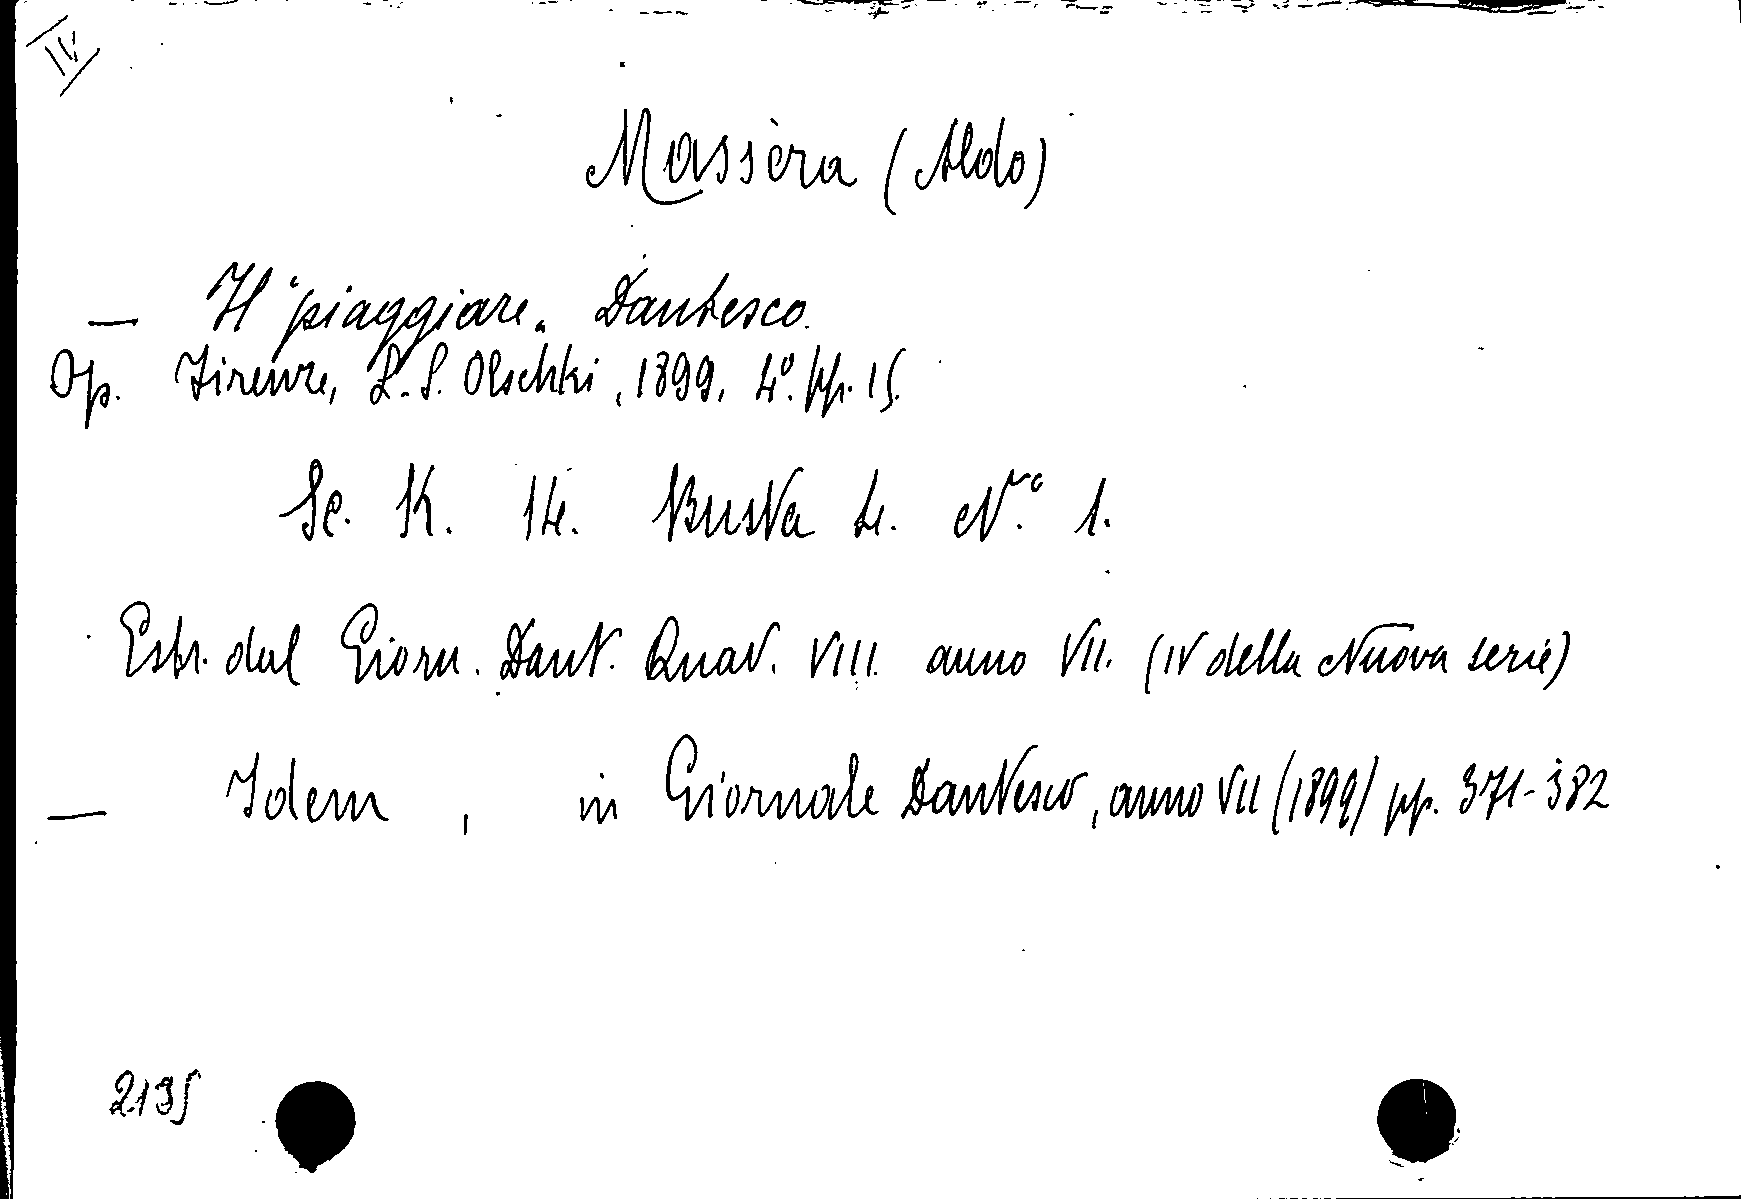 IV
Massèra (Aldo)
— Il "piaggiare" Dantesco.
Op. Firenze, L. S. Olschki, 1899. 4º. pp. 15.
Sc. K. 14. Busta 4. Nº. 1.
Estr. dal Giorn. Dant. Quad. VIII. anno VII. (IV della Nuova serie)
— Idem, in Giornale Dantesco, anno VII (1899) pp. 371-382
2135